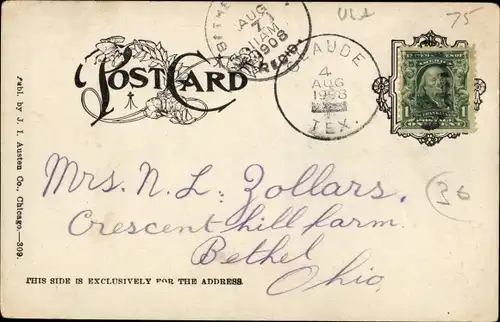 USA
75
BETHE
AUG
7
AM
1908
REC'D.
CLAUDE
4
AUG
1908
TEX.
POST CARD
1
Mrs. N. L. Zollars,
Crescent hill farm.
36
Bethel
Ohio.
THIS SIDE IS EXCLUSIVELY FOR THE ADDRESS.
Publ. by J. I. Austen Co., Chicago.—309.